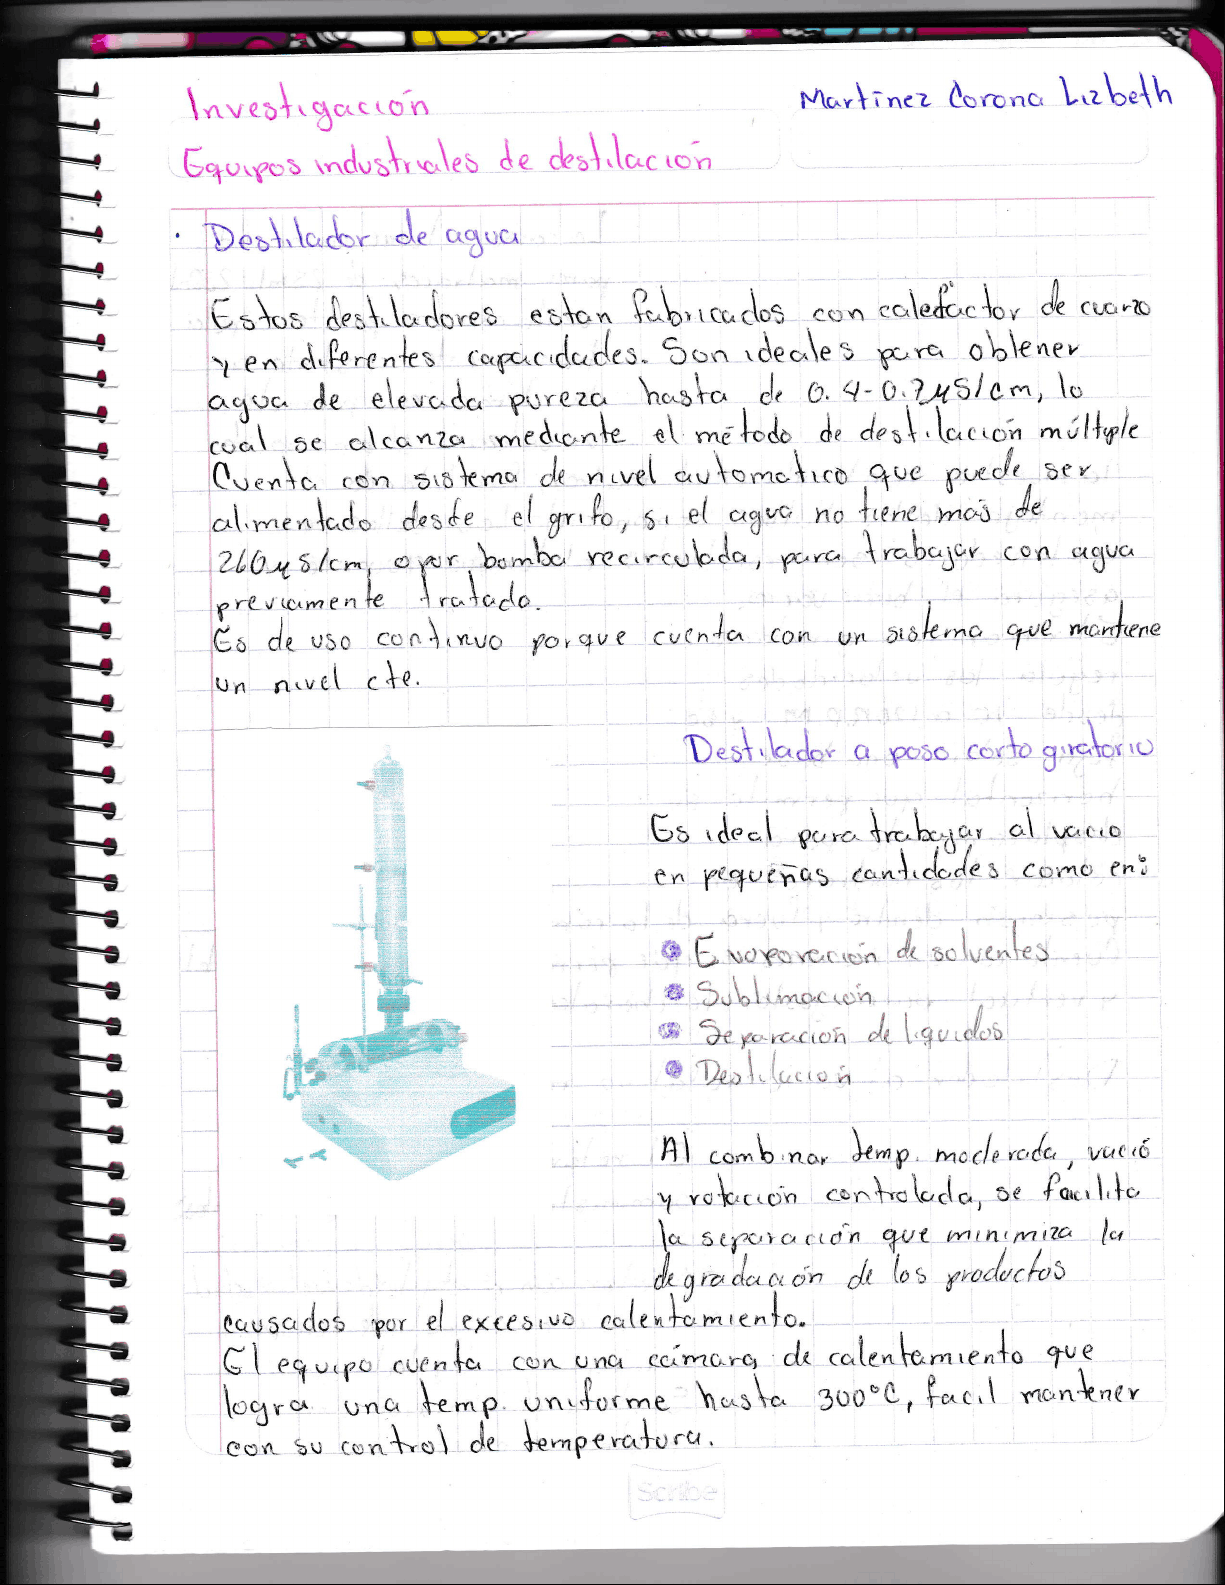 Investigación
Martínez Corona Lizbeth
Equipos industriales de destilación
· Destilador de agua
Estos destiladores estan fabricados con calefactor de cuarzo
y en diferentes capacidades. Son ideales para obtener
agua de elevada pureza hasta de 0.4-0.2µS/cm, lo
cual se alcanza mediante el método de destilación múltiple
Cuenta con sistema de nivel automatico que puede ser
alimentado desde el grifo, si el agua no tiene más de
260µS/cm, o por bomba recirculada, para trabajar con agua
previamente tratada.
Es de uso continuo porque cuenta con un sistema que mantiene
un nivel cte.
Destilador a paso corto giratorio
Es ideal para trabajar al vacio
en pequeñas cantidades como en:
Evaporación de solventes
Sublimación
Separación de liquidos
Destilación
Al combinar temp. moderada, vació
y rotación controlada, se facilita
la separación que minimiza la
degradación de los productos
causados por el excesivo calentamiento.
El equipo cuenta con una cámara de calentamiento que
logra una temp. uniforme hasta 300°C, facil mantener
con su control de temperatura.
Scribe